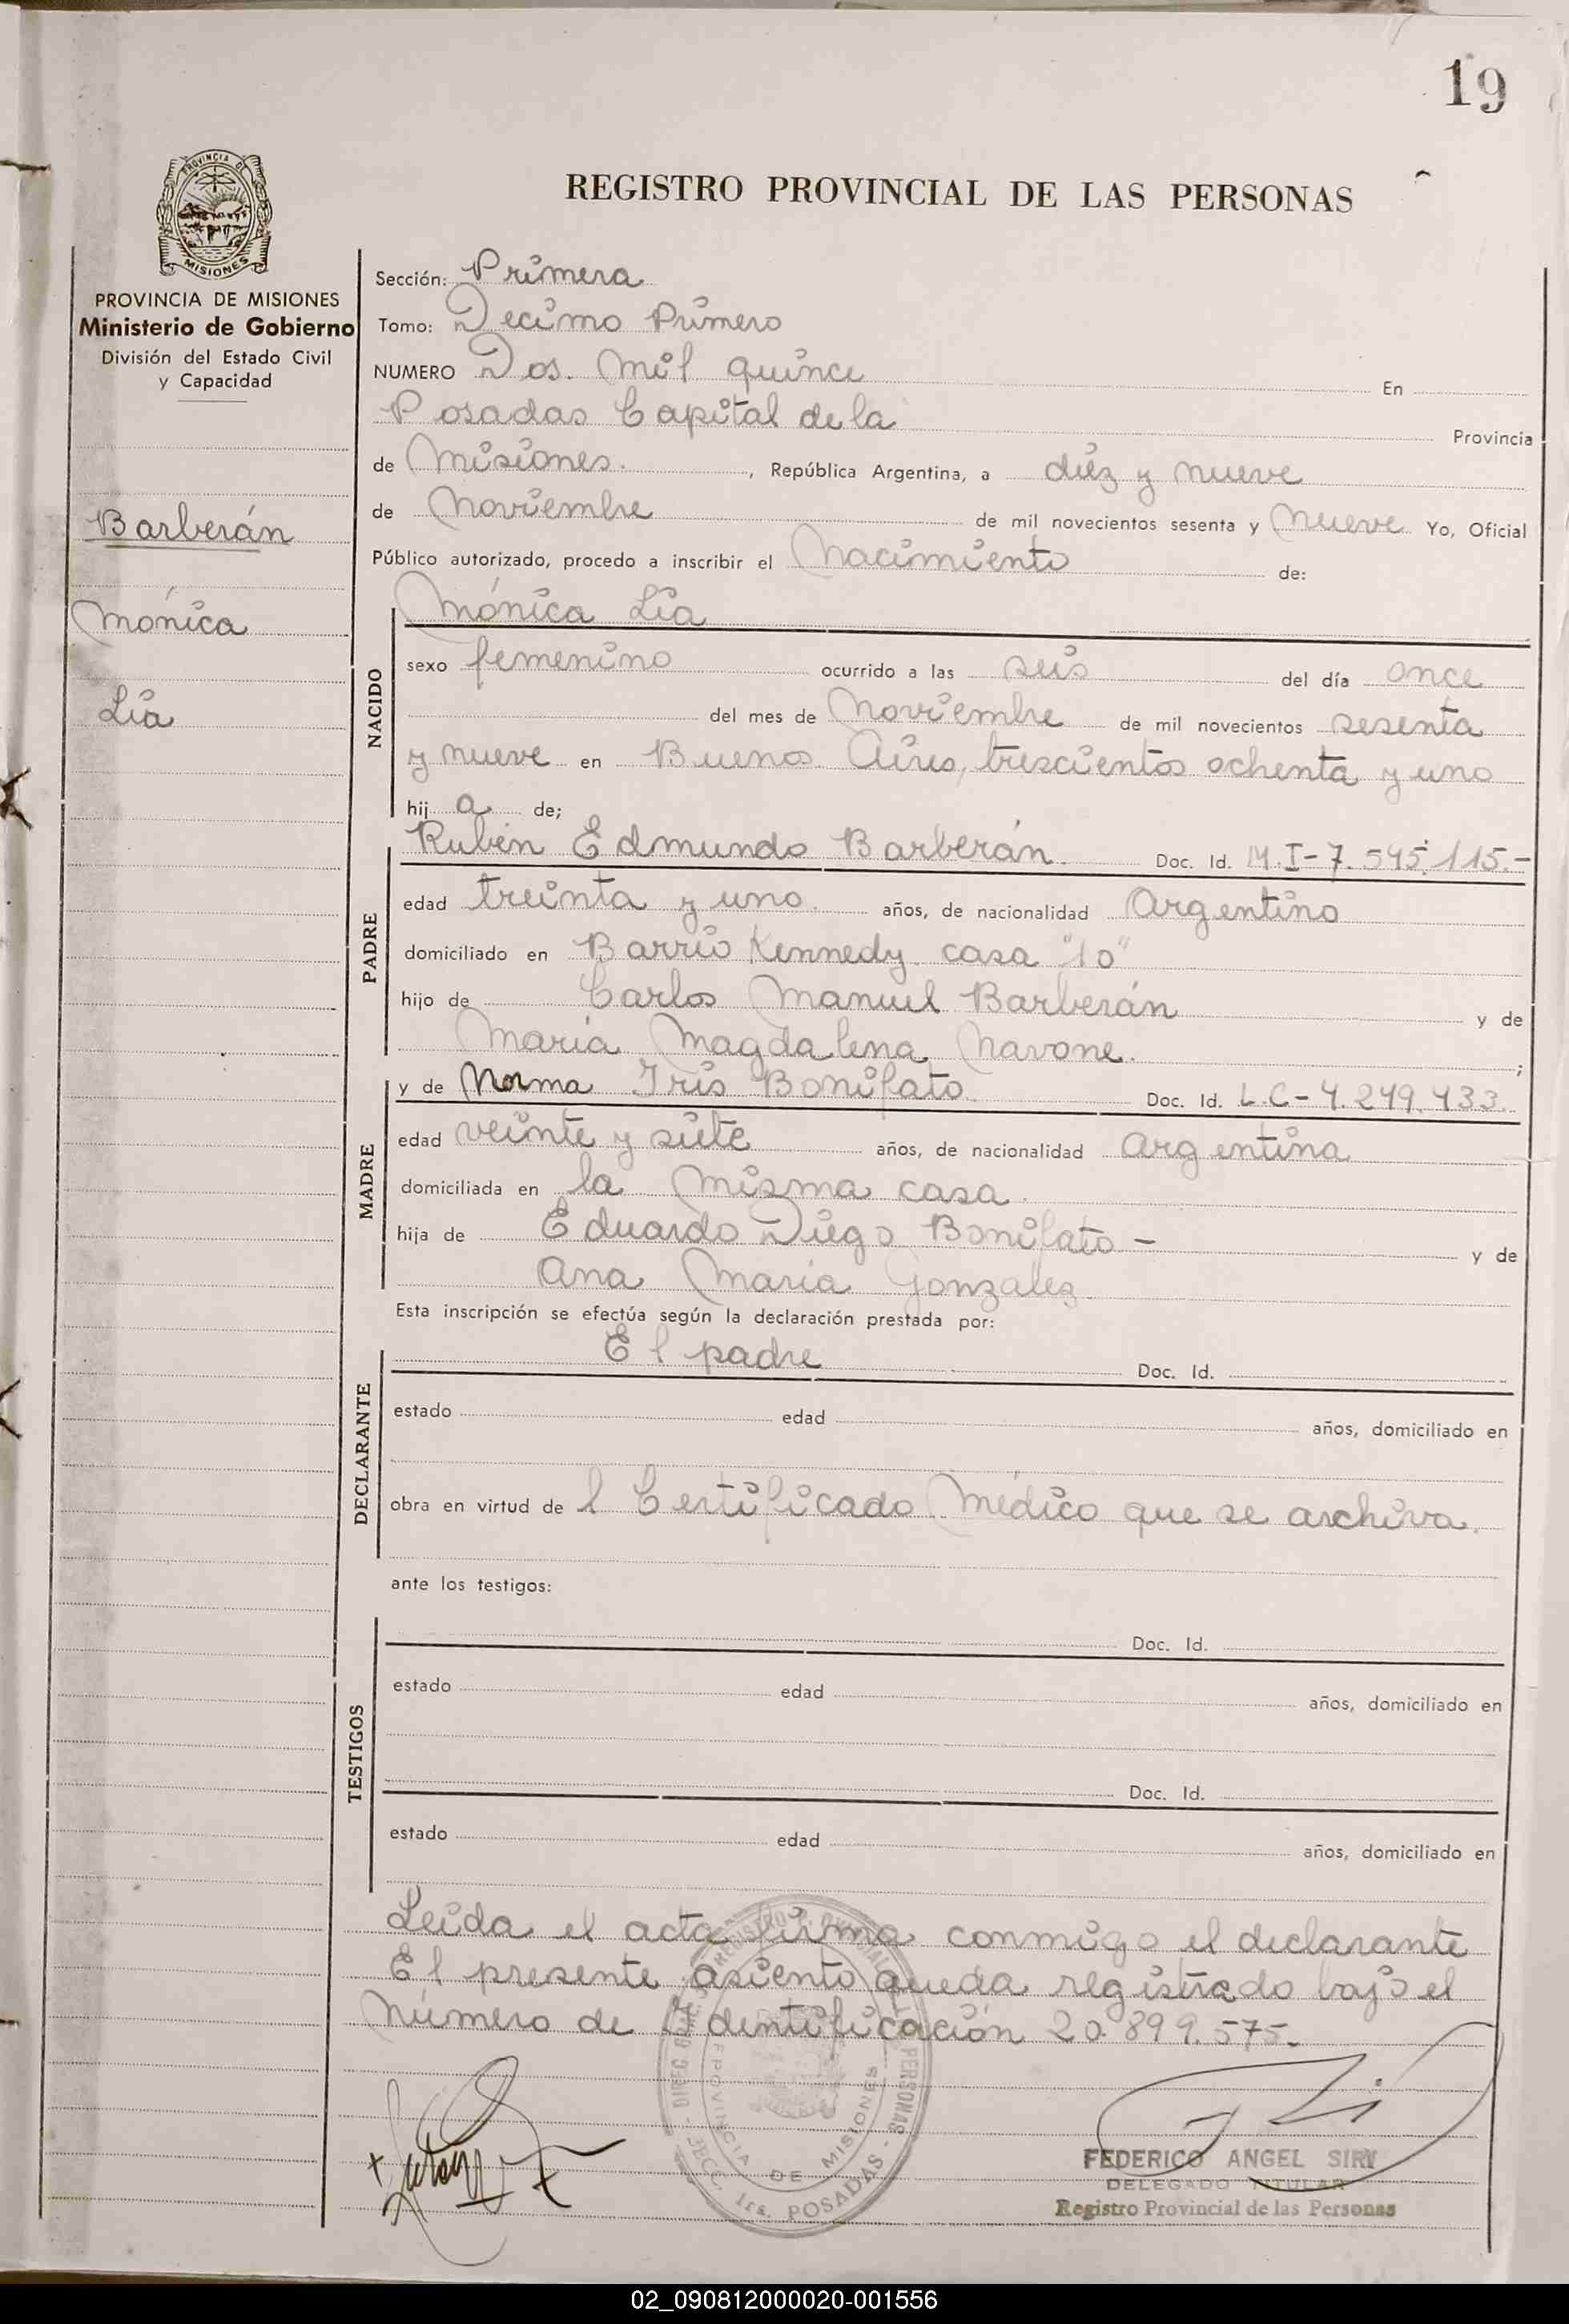 19
PROVINCIA DE
MISIONES
REGISTRO PROVINCIAL DE LAS PERSONAS
PROVINCIA DE MISIONES
Ministerio de Gobierno
División del Estado Civil
y Capacidad
Barberán
Mónica
Lia
Sección: Primera
Tomo: Decimo Primero
NUMERO Dos mil quince En
Posadas Capital de la Provincia
de Misiones. , República Argentina, a diez y nueve
de Noviembre de mil novecientos sesenta y nueve Yo, Oficial
Público autorizado, procedo a inscribir el Nacimiento de:
NACIDO
Mónica Lia
sexo femenino ocurrido a las seis del día once
del mes de Noviembre de mil novecientos sesenta
y nueve en Buenos Aires, trescientos ochenta y uno
hij a de;
PADRE
Rubén Edmundo Barberán. Doc. Id. M.I-7.545.115.-
edad treinta y uno. años, de nacionalidad Argentino
domiciliado en Barrio Kennedy casa "10"
hijo de Carlos Manuel Barberán y de
Maria Magdalena Navone. ;
MADRE
y de Norma Iris Bonifato Doc. Id. L.C-4.249.433.
edad veinte y siete años, de nacionalidad Argentina
domiciliada en la misma casa.
hija de Eduardo Diego Bonifato - y de
Ana Maria Gonzalez
Esta inscripción se efectúa según la declaración prestada por:
DECLARANTE
El padre Doc. Id.
estado edad años, domiciliado en
obra en virtud de l Certificado Médico que se archiva.
ante los testigos:
TESTIGOS
Doc. Id.
estado edad años, domiciliado en
Doc. Id.
estado edad años, domiciliado en
Leida el acta firma conmigo el declarante
El presente asiento queda registrado bajo el
Número de Identificación 20.899.575.-
PROVINCIA DE MISIONES
1ra. POSADAS
FEDERICO ANGEL SIRI
DELEGADO TITULAR
Registro Provincial de las Personas
02_090812000020-001556